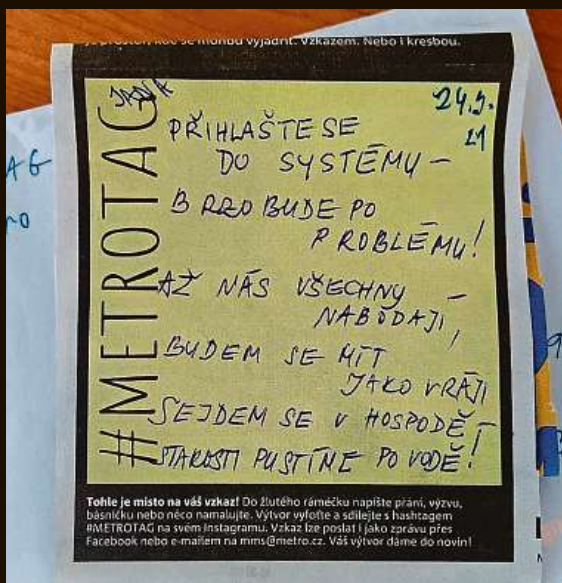 je prostor, kde se mohou vyjádřit. Vzkazem. Nebo i kresbou.
#METROTAG
JANA
24.5.
21
PŘIHLAŠTE SE
DO SYSTÉMU –
BRZO BUDE PO
PROBLÉMU!
AŽ NÁS VŠECHNY –
NABODAJÍ,
BUDEM SE MÍT
JAKO V RÁJI
SEJDEM SE V HOSPODĚ –
STAROSTI PUSTÍME PO VODĚ!
Tohle je místo na váš vzkaz! Do žlutého rámečku napište přání, výzvu,
básničku nebo něco namalujte. Výtvor vyfoťte a sdílejte s hashtagem
#METROTAG na svém Instagramu. Vzkaz lze poslat i jako zprávu přes
Facebook nebo e-mailem na mms@metro.cz. Váš výtvor dáme do novin!